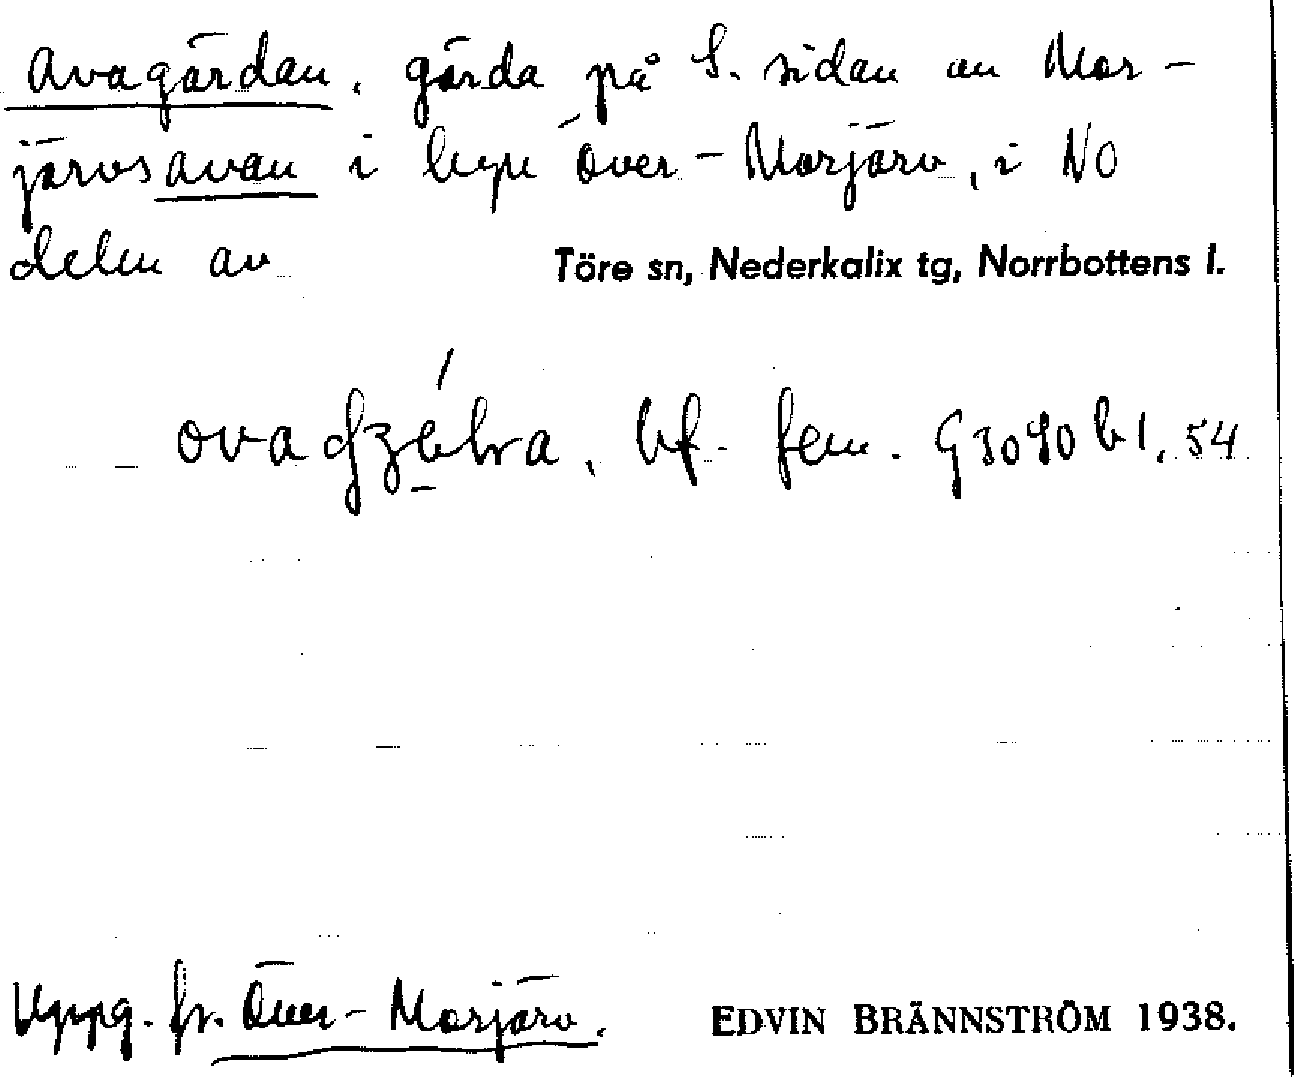 Avagärdan, gärda på S. sidan av Mor-
järvsavan i byn Över-Morjärv, i NO
delen av Töre sn, Nederkalix tg, Norrbottens l.
bf. fem. G3090 b1, 54
Uppg. fr. Över-Morjärv. EDVIN BRÄNNSTRÖM 1938.